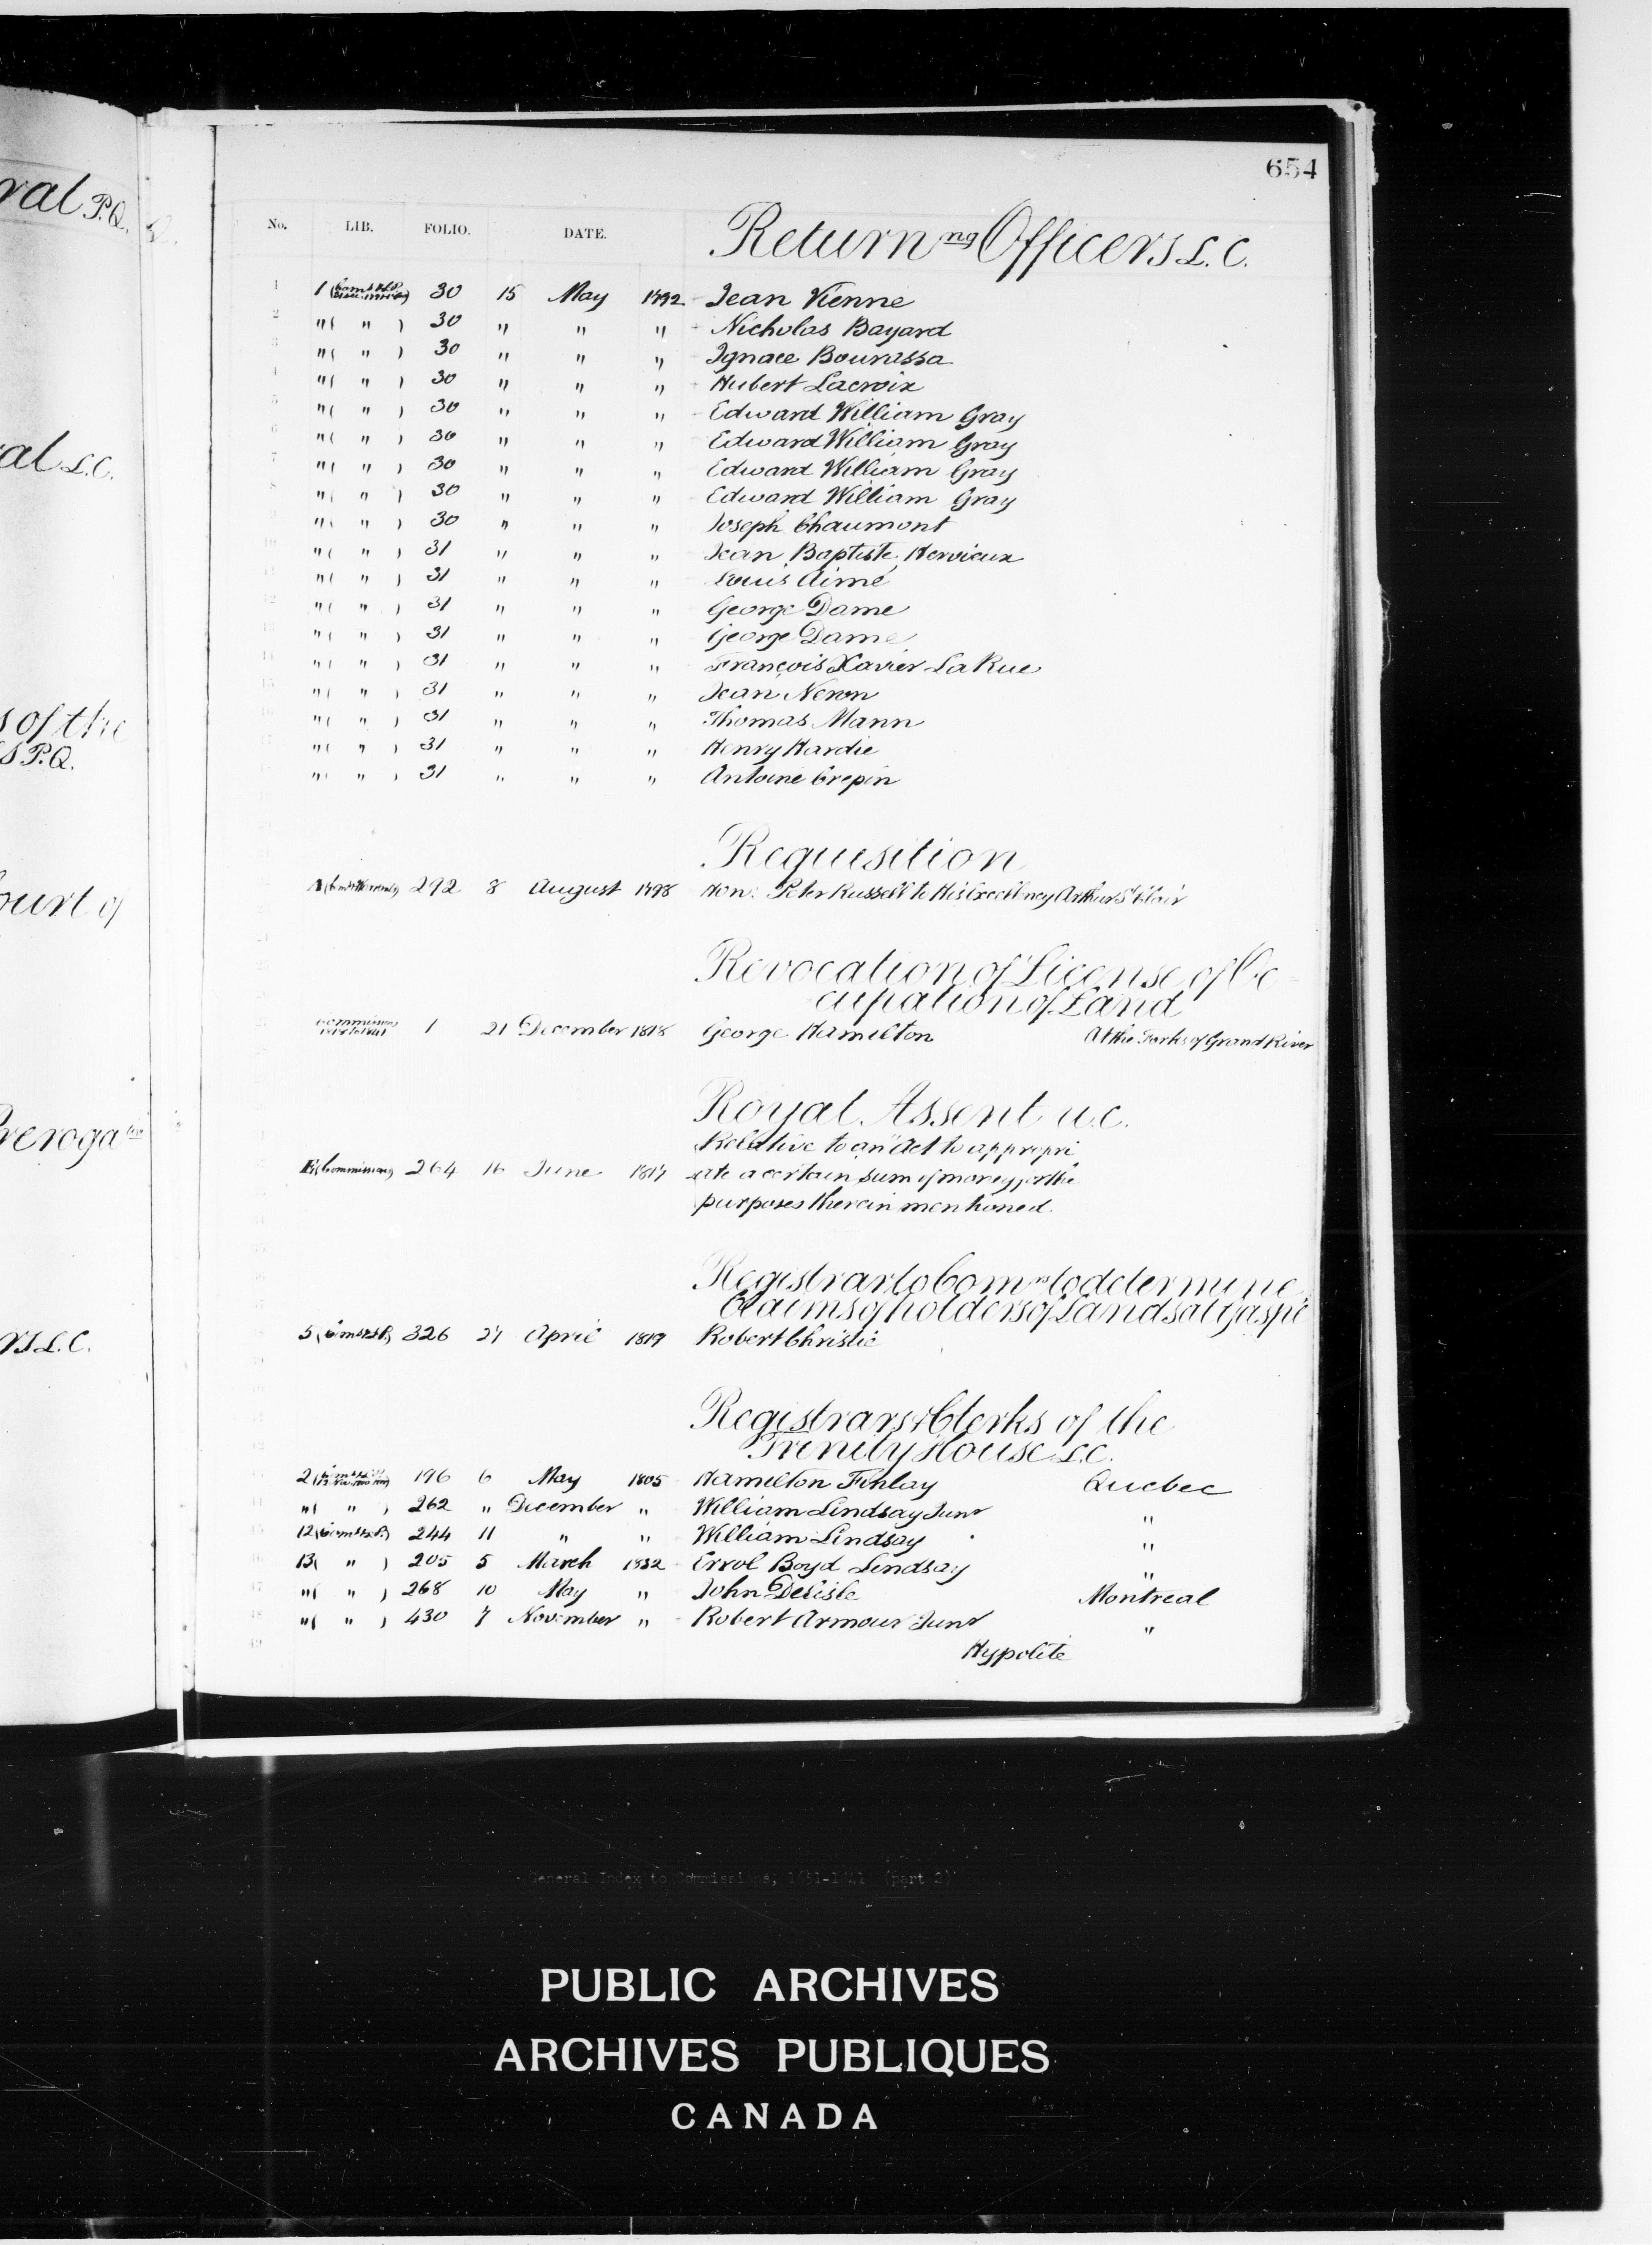 ral P.Q.
al L.C.
s of the
S P.Q.
ourt of
reroga
rs L.C.
654
No. LIB. FOLIO. DATE. Return ng Officers L.C.
1 1 ( 30 15 May 1792 Jean Vienne
2 " ( " ) 30 " " " Nicholas Bayard
3 " ( " ) 30 " " " Ignace Bourassa
4 " ( " ) 30 " " " Hubert Lacroix
5 " ( " ) 30 " " " Edward William Gray
6 " ( " ) 30 " " " Edward William Gray
7 " ( " ) 30 " " " Edward William Gray
8 " ( " ) 30 " " " Edward William Gray
9 " ( " ) 30 " " " Joseph Chaumont
10 " ( " ) 31 " " " Jean Baptiste Hervieux
11 " ( " ) 31 " " " Louis Aimé
12 " ( " ) 31 " " " George Dame
13 " ( " ) 31 " " " George Dame
14 " ( " ) 31 " " " François Xavier LaRue
15 " ( " ) 31 " " " Jean Neron
16 " ( " ) 31 " " " Thomas Mann
17 " ( " ) 31 " " " Henry Hardie
" ( " ) 31 " " " Antoine Crepin
Requisition
292 8 August 1798 Hon: Peter Russell to His Excellency Arthur St Clair
Revocation of License of Oc-
cupation of Land
1 21 December 1818 George Hamilton At the Forks of Grand River
Royal Assent U.C.
Relative to an "Act to appropri
F (Commissions) 264 16 June 1817 ate a certain sum of money for the
purposes therein mentioned.
Registrar to Comrs to determine
Claims of holders of Lands at Gaspé
5 ( 326 27 April 1819 Robert Christie
Registrars & Clerks of the
Trinity House L.C.
2 ( 196 6 May 1805 Hamilton Finlay Quebec
" ( " ) 262 " December " William Lindsay Junr "
12 ( 244 11 " " William Lindsay "
13 ( " ) 205 5 March 1832 Errol Boyd Lindsay "
" ( " ) 268 10 May " John Delisle Montreal
" ( " ) 430 7 November " Robert Armour Junr "
Hypolite
General Index to Commissions, 1651-1841 (part 2)
PUBLIC ARCHIVES
ARCHIVES PUBLIQUES
CANADA